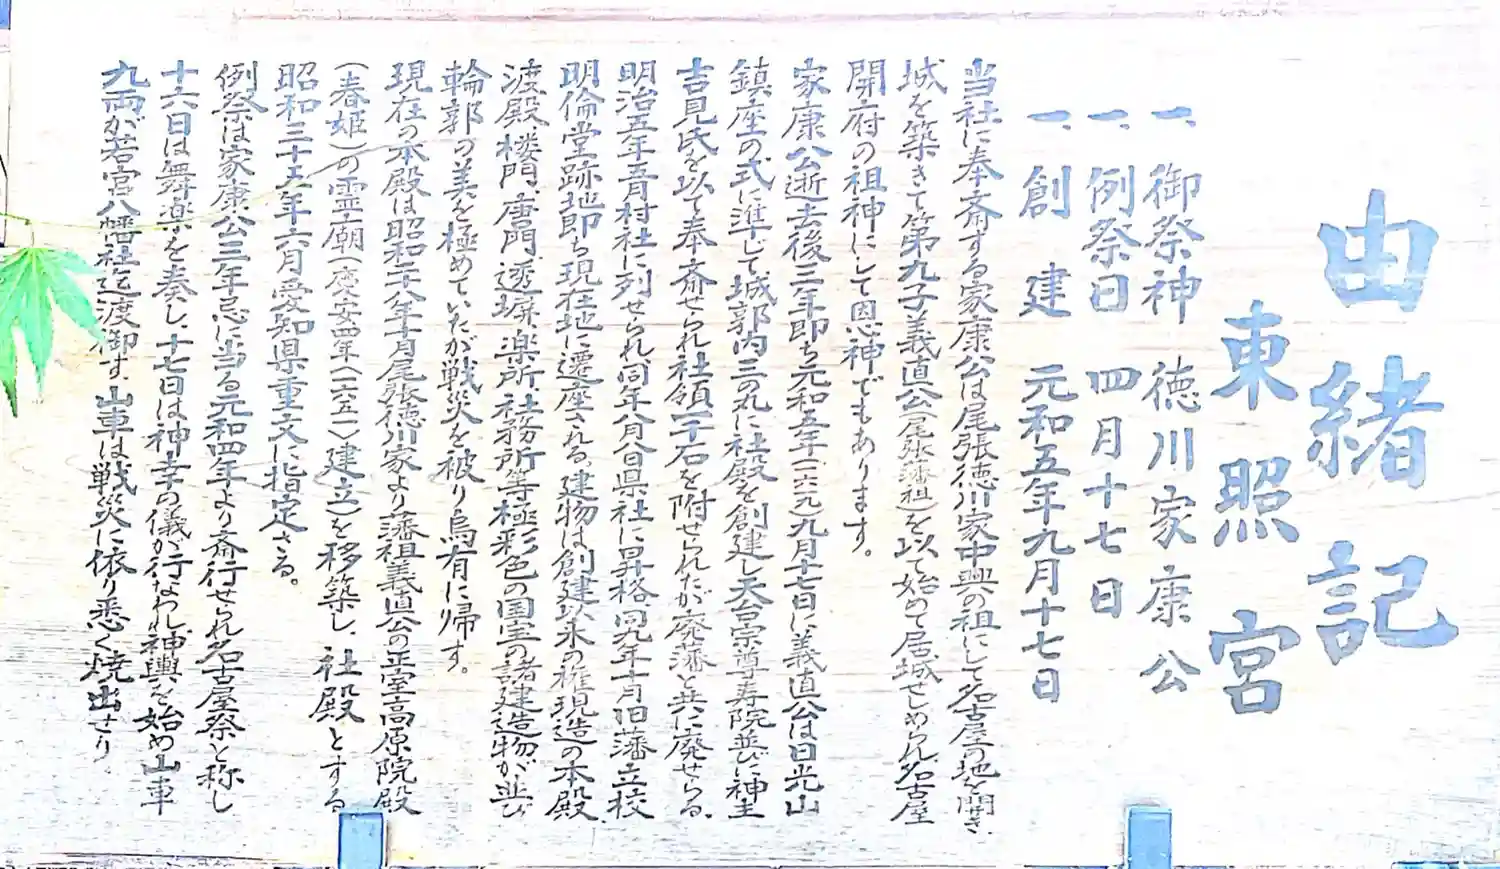 由緒記
東照宮
一、御祭神 徳川家康公
一、例祭日 四月十七日
一、創建 元和五年九月十七日
当社に奉斎する家康公は尾張徳川家中興の祖にして名古屋の地を開き、
城を築きて第九子義直公(尾張藩祖)を以て始めて居城せしめられ名古屋
開府の祖神にして恩神でもあります。
家康公逝去後三年即ち元和五年(一六一九)九月十七日に義直公は日光山
鎮座の式に準じて城郭内三の丸に社殿を創建し天台宗尊寿院並びに神主
吉見氏を以て奉斎せられ社領一千石を附せられたが廃藩と共に廃せらる。
明治五年五月村社に列せられ同年八月八日県社に昇格、同九年十月旧藩立校
明倫堂跡地即ち現在地に遷座される。建物は創建以来の権現造の本殿、
渡殿、楼門、唐門、透塀、楽所、社務所等極彩色の国宝の諸建造物が並び
輪郭の美を極めていたが戦災を被り烏有に帰す。
現在の本殿は昭和二十八年十月尾張徳川家より藩祖義直公の正室高原院殿
(春姫)の霊廟(慶安四年(一六五一)建立)を移築し、社殿とする
昭和三十五年六月愛知県重文に指定さる。
例祭は家康公三年忌に当る元和四年より斎行せられ名古屋祭と称し
十六日は舞楽を奏し、十七日は神幸の儀が行なわれ神輿を始め山車
九両が若宮八幡社迄渡御す、山車は戦災に依り悉く焼出せり